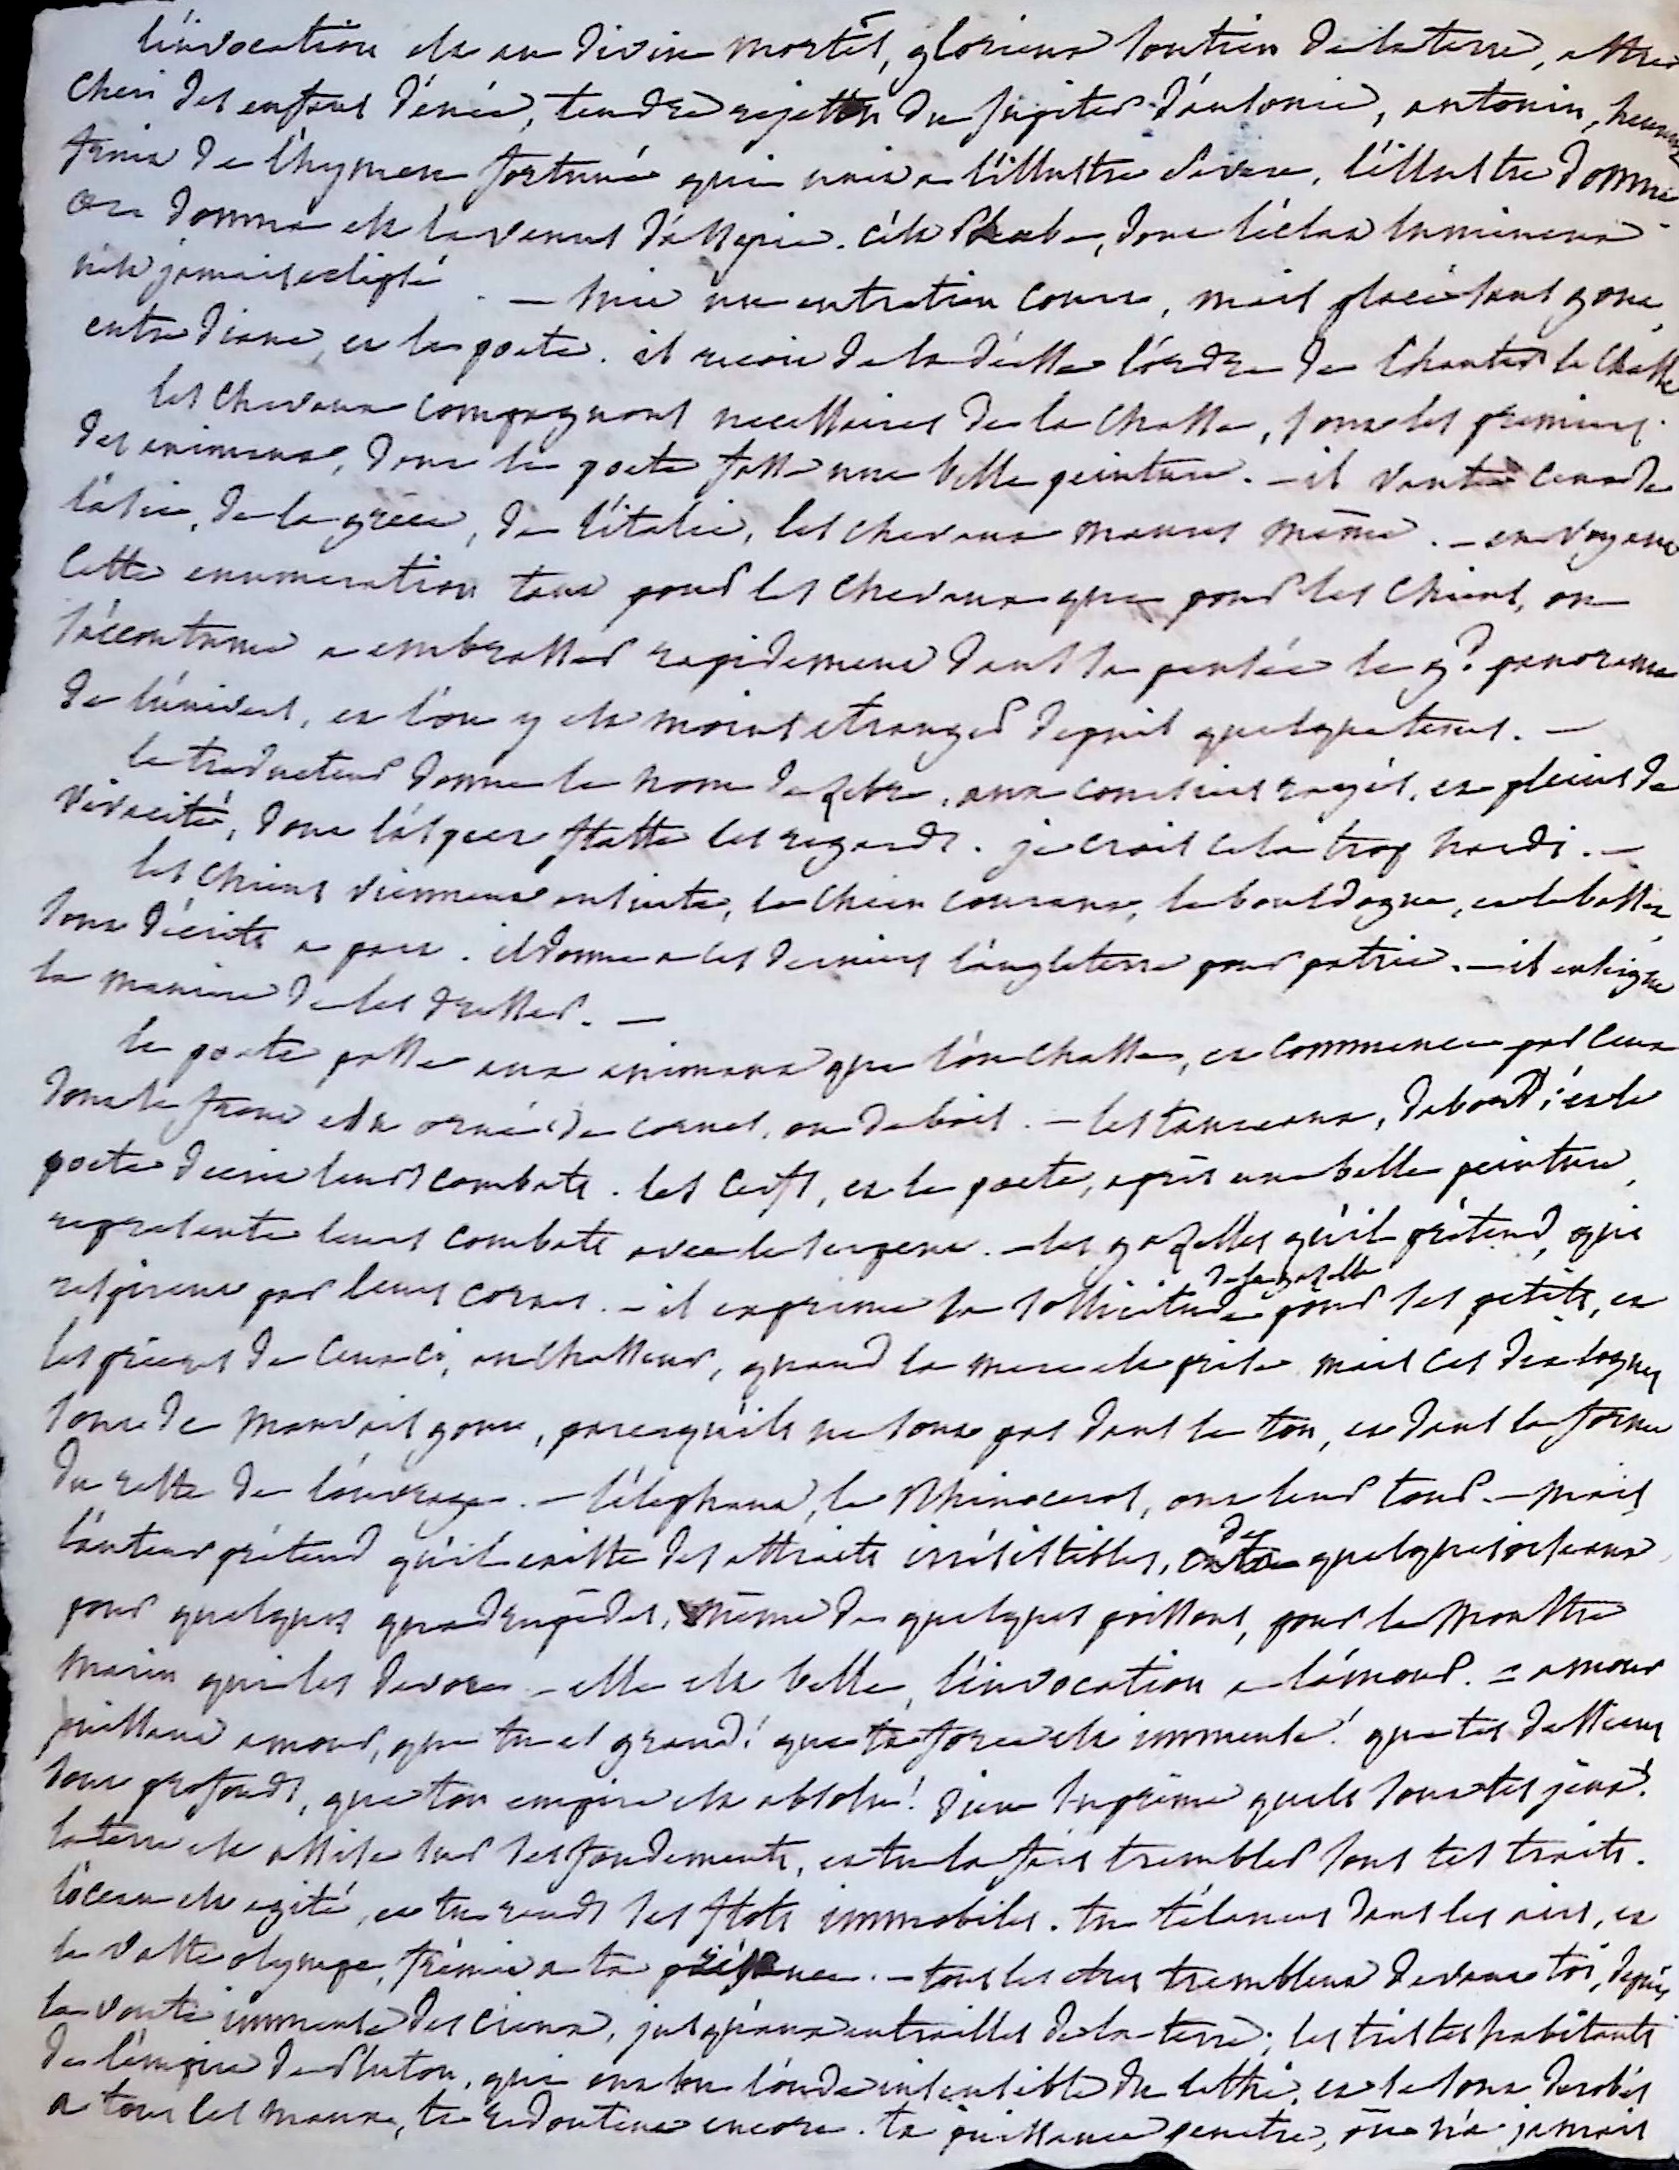 l'invocation est au divin mortel, glorieux soutien de la terre, astre
cheri des enfans d'énée, tendre rejetton du jupiter d'ausonie, antonin, heureux
fruit de l'hymen fortuné qui unit a l'illustre severe, l'illustre domna -
cette domna est la venus d'assyrie. c'est Phoebe, dont l'éclat lumineux
n'est jamais eclipsé. — suit un entretien court, mais placé sans gout,
entre diane, et le poete. il recoit de la déesse l'ordre de chanter la chasse
les chevaux compagnons necessaires de la chasse, sont les premiers
des animaux, dont le poete fasse une belle peinture. - il vante ceux de
l'asie, de la grèce, de l'italie, les chevaux maures même. - en voyant
cette enumeration tant pour les chevaux que pour les chiens, on
s'accoutume a embrasser rapidement dans sa pensée le gd panorama
de l'univers, et l'on y est moins etranger depuis quelque tems. —
le traducteur donne le nom de zebre, aux coursiers rayés, et pleins de
vivacité, dont l'aspect flatte les regards. je crois cela trop hardi. —
les chiens viennent ensuite, le chien courant, le bouldogue, et le basset,
sont décrits a part. il donne a ces derniers l'angleterre pour patrie. - il enseigne
la maniere de les dresser. —
le poete passe aux animaux que l'on chasse, et commence par ceux
dont le front est orné de cornes, ou de bois. - les taureaux, d'abord; et le
poete decrit leurs combats. les cerfs, et le poete, après une belle peinture,
represente leurs combats avec le serpent. - les gazelles qu'il prétend, qui
respirent par leurs cornes. - il exprime la sollicitude de la gazelle pour ses petits, et
les prieres de ceux-ci, au chasseur, quand la mere est prise mais ces dialogues
sont de mauvais gout, parcequ'ils ne sont pas dans le ton, et dans la forme
du reste de l'ouvrage. - l'éléphant, le Rhinoceros, ont leur tour. - mais
l'auteur prétend qu'il existe des attraits irrésistibles, de quelques oiseaux
pour quelques quadrupèdes, même de quelques poissons, pour le monstre
marin qui les devore - elle est belle, l'invocation a l'amour. = amour
puissant amour, que tu es grand! que ta force est immense! que tes desseins
sont profonds, que ton empire est absolu! dieu suprême quels sont tes jeux!
la terre est assise sur ses fondements, et tu la fais trembler sous tes traits.
l'ocean est agité, et tu rends ses flots immobiles. tu t'élances dans les airs, et
le vaste olympe, frémit a ta présence. - tous les etres tremblent devant toi, depuis
la voute immense des cieux, jusqu'aux entrailles de la terre; les tristes habitants
de l'empire de Pluton, qui ont bu l'onde insensible du lethé, et se sont derobés
a tous les maux, te redoutent encore. ta puissance penetre, où n'a jamais